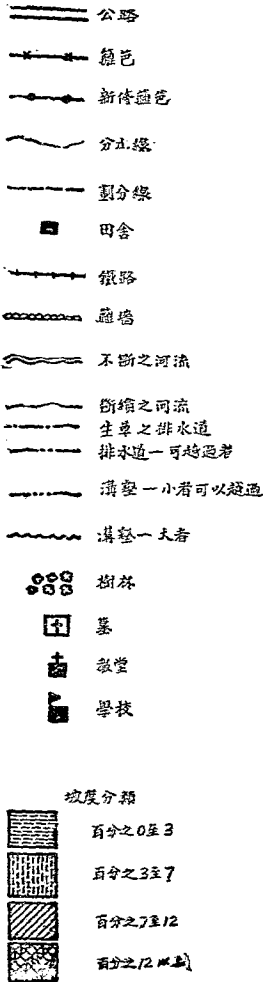 公路
籬笆
新修籬笆
分水線
劃分線
田舍
鐵路
籬牆
不斷之河流
斷續之河流
生草之排水道
排水道一可越過者
溝壑一小者可以越過
溝壑一大者
樹林
墓
教堂
學校
坡度分類
百分之0至3
百分之3至7
百分之7至12
百分之12以上